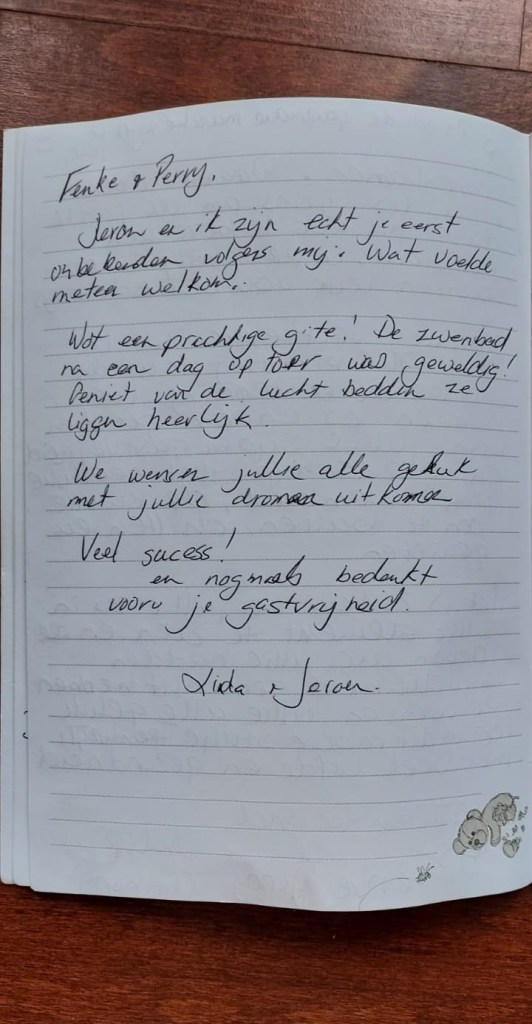 Fenke & Perry,
Jeroen en ik zijn echt je eerst
onbekenden volgers mij. Wat voelde
meteen welkom.
Wat een prachtige gite! De zwenbad
na een dag op toer was geweldig!
Geniet van de lucht bedden ze
liggen heerlijk.
We wensen jullie alle geluk
met jullie dromen uitkomen
Veel sucess!
en nogmaals bedankt
vooru je gastvrijheid.
Linda & Jeroen.